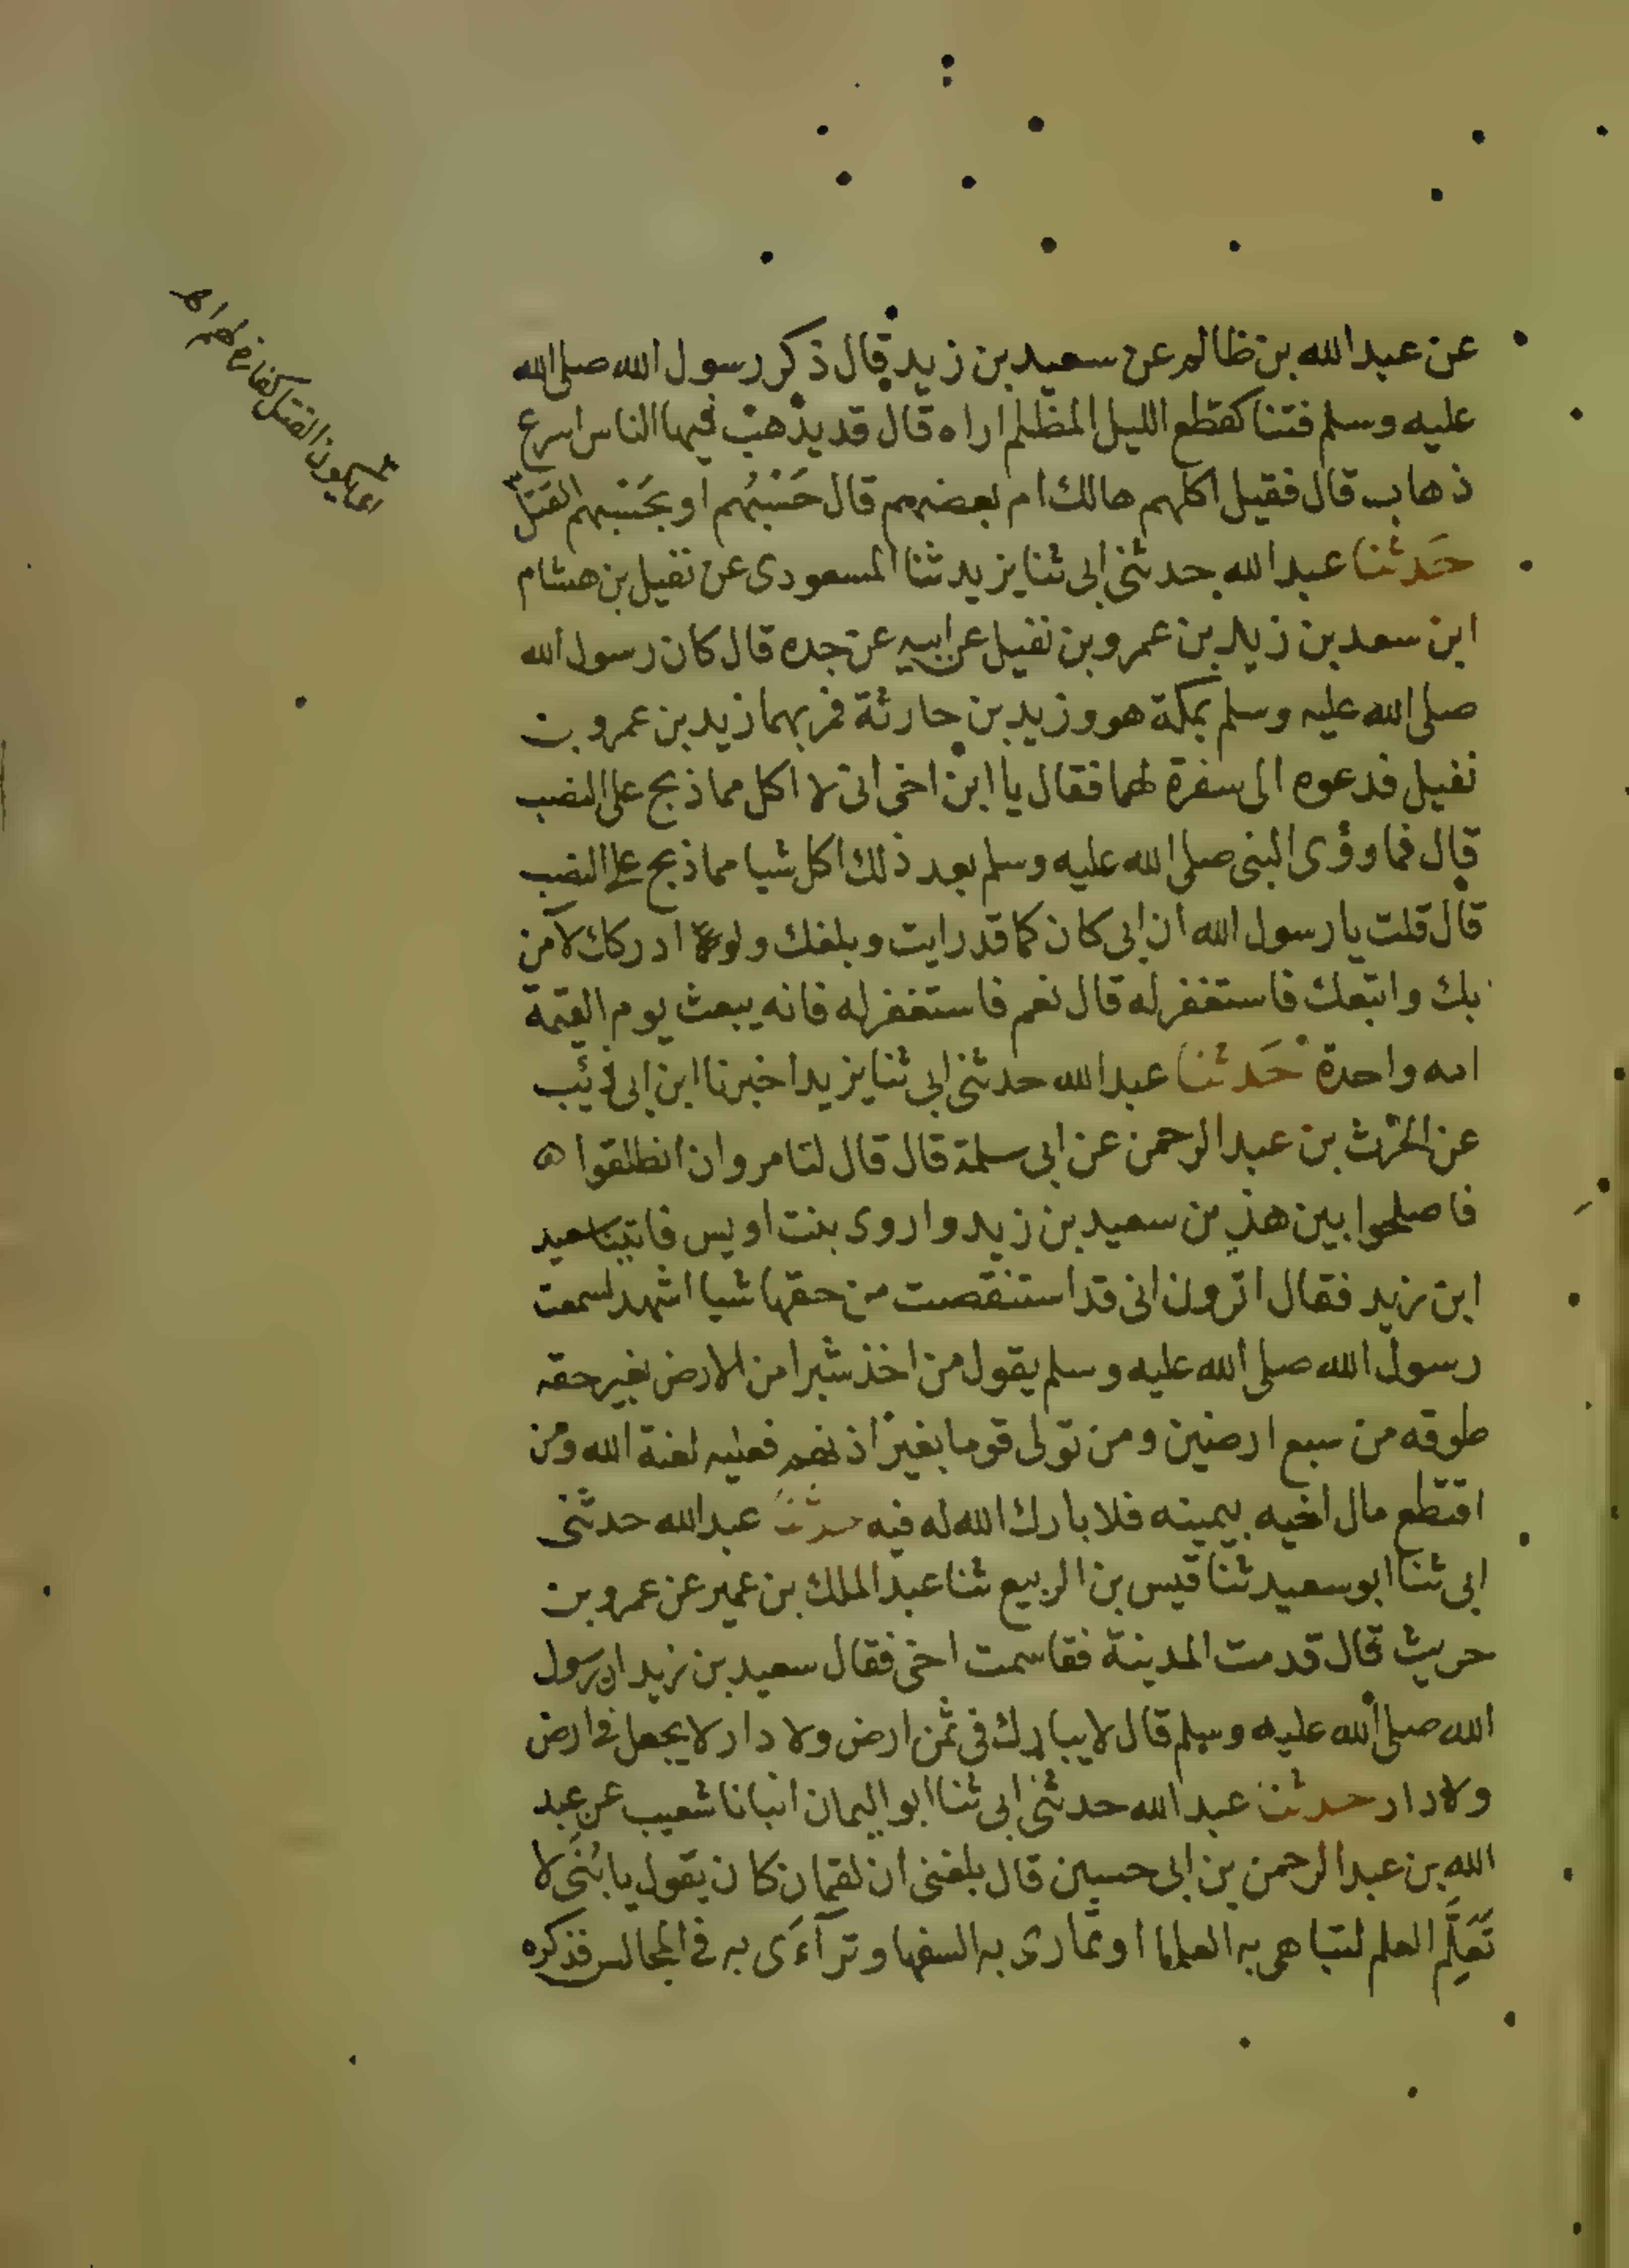 عن عبد الله بن ظالم عن سعيد بن زيد قال ذكر رسول الله صلى الله
عليه وسلم فتنا كقطع الليل المظلم اراه قال قد يذهب فيها الناس اسرع
ذهاب قال فقيل اكلهم هالك ام بعضهم قال حَسْبُهم او بحَسْبهم القتل
حَدثنا عبد الله حدثنى ابى ثنا يزيد ثنا المسعودى عن نفيل بن هشام
ابن سعد بن زيد بن عمرو بن نفيل عن ابيه عن جده قال كان رسول الله
صلى الله عليه وسلم بمكة هو وزيد بن حارثة فمر بهما زيد بن عمرو بن
نفيل فدعوه الى سفرة لهما فقال يا ابن اخى انى لا اكل مما ذبح على النصب
قال فما رؤى النبى صلى الله عليه وسلم بعد ذلك اكل شيا مما ذبح على النصب
قال قلت يا رسول الله ان ابى كان كما قد رايت وبلغك ولو ادركك لآمن
بك واتبعك فاستغفر له قال نعم فاستغفر له فانه يبعث يوم القيمة
امه واحدة حَدثنا عبد الله حدثنى ابى ثنا يزيد اخبرنا ابن ابى ذئب
عن الحرث بن عبد الرحمن عن ابى سلمة قال قال لنا مروان انطلقوا
فاصلحوا بين هذين سعيد بن زيد واروى بنت اويس فاتينا سعيد
ابن زيد فقال اترون انى قد استنقصت من حقها شيا اشهد لسمعت
رسول الله صلى الله عليه وسلم يقول من اخذ شبرا من الارض بغير حقه
طوقه من سبع ارضين ومن تولى قوما بغير اذنهم فعليه لعنة الله ومن
اقتطع مال اخيه بيمينه فلا بارك الله له فيه حدثنا عبد الله حدثنى
ابى ثنا ابو سعيد ثنا قيس بن الربيع ثنا عبد الملك بن عمير عن عمرو بن
حريث قال قدمت المدينة فقاسمت اخى فقال سعيد بن زيد ان رسول
الله صلى الله عليه وسلم قال لا يبارك فى ثمن ارض ولا دار لا يجعل فى ارض
ولا دار حدثنا عبد الله حدثنى ابى ثنا ابو اليمان انبانا شعيب عن عبد
الله بن عبد الرحمن بن ابى حسين قال بلغنى ان لقمان كان يقول يا بُنَى لا
تَعَلَّم العلم لتباهى به العلما او تمارى به السفها وترآءَى به فى المجالس فذكره